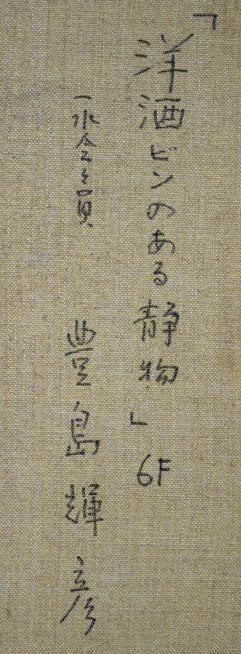 「洋酒ビンのある静物」 6F
一水会会員 豊島輝彦